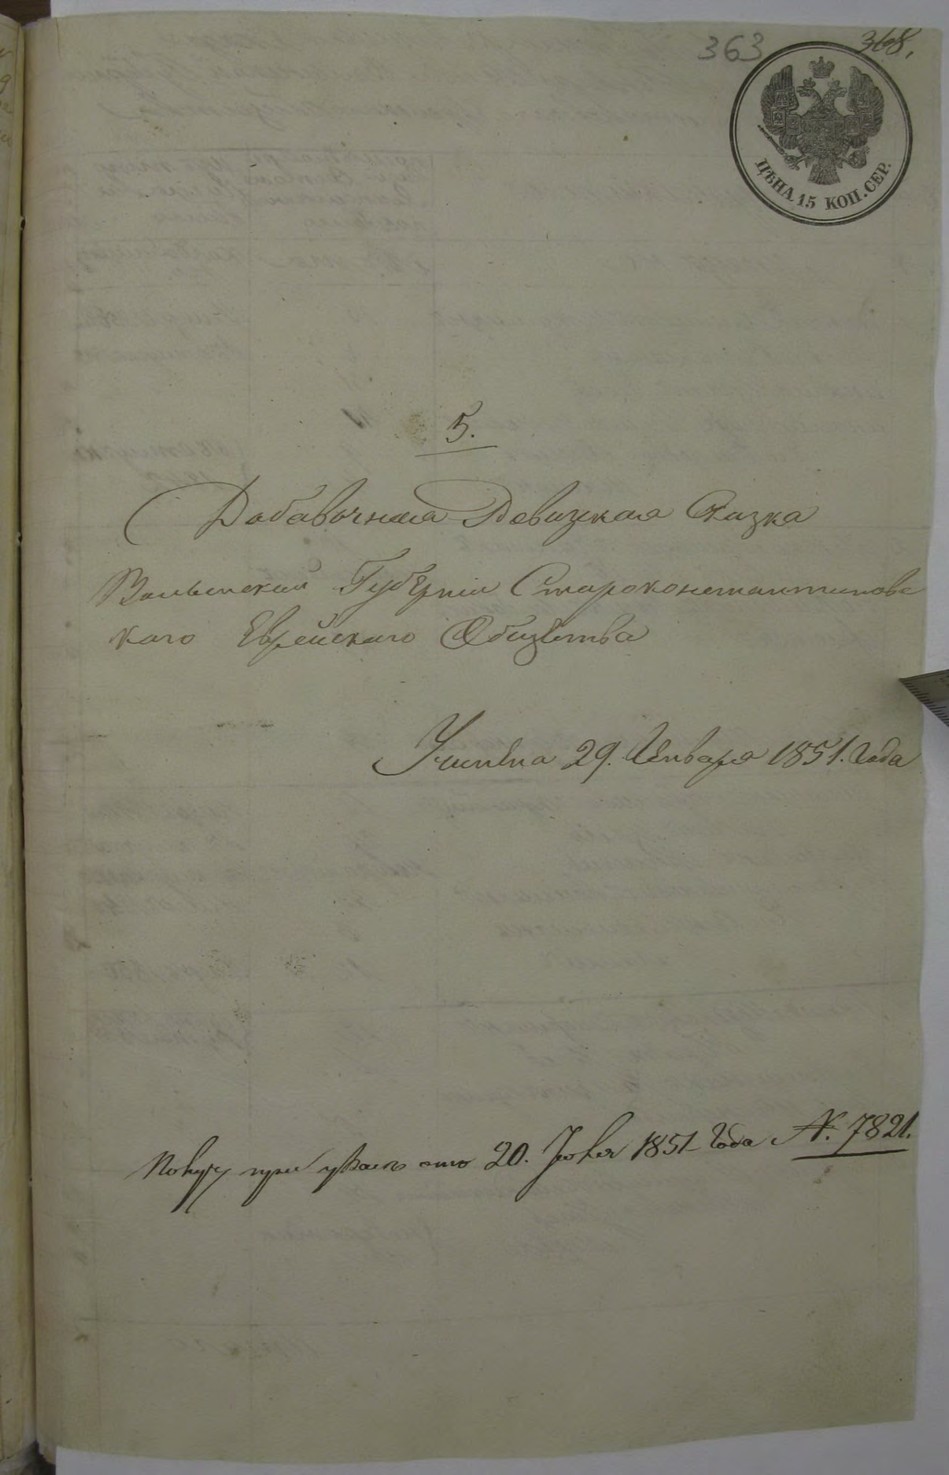 363
368.
ЦѢНА 15 КОП. СЕР.
5.
Добавочная Ревизская Сказка
Волынской Губерніи Староконстантиновс
каго Еврейскаго Общества
Учинена 29. Января 1851. Года
при указѣ отъ 20. Іюня 1851 Года №. 7821.